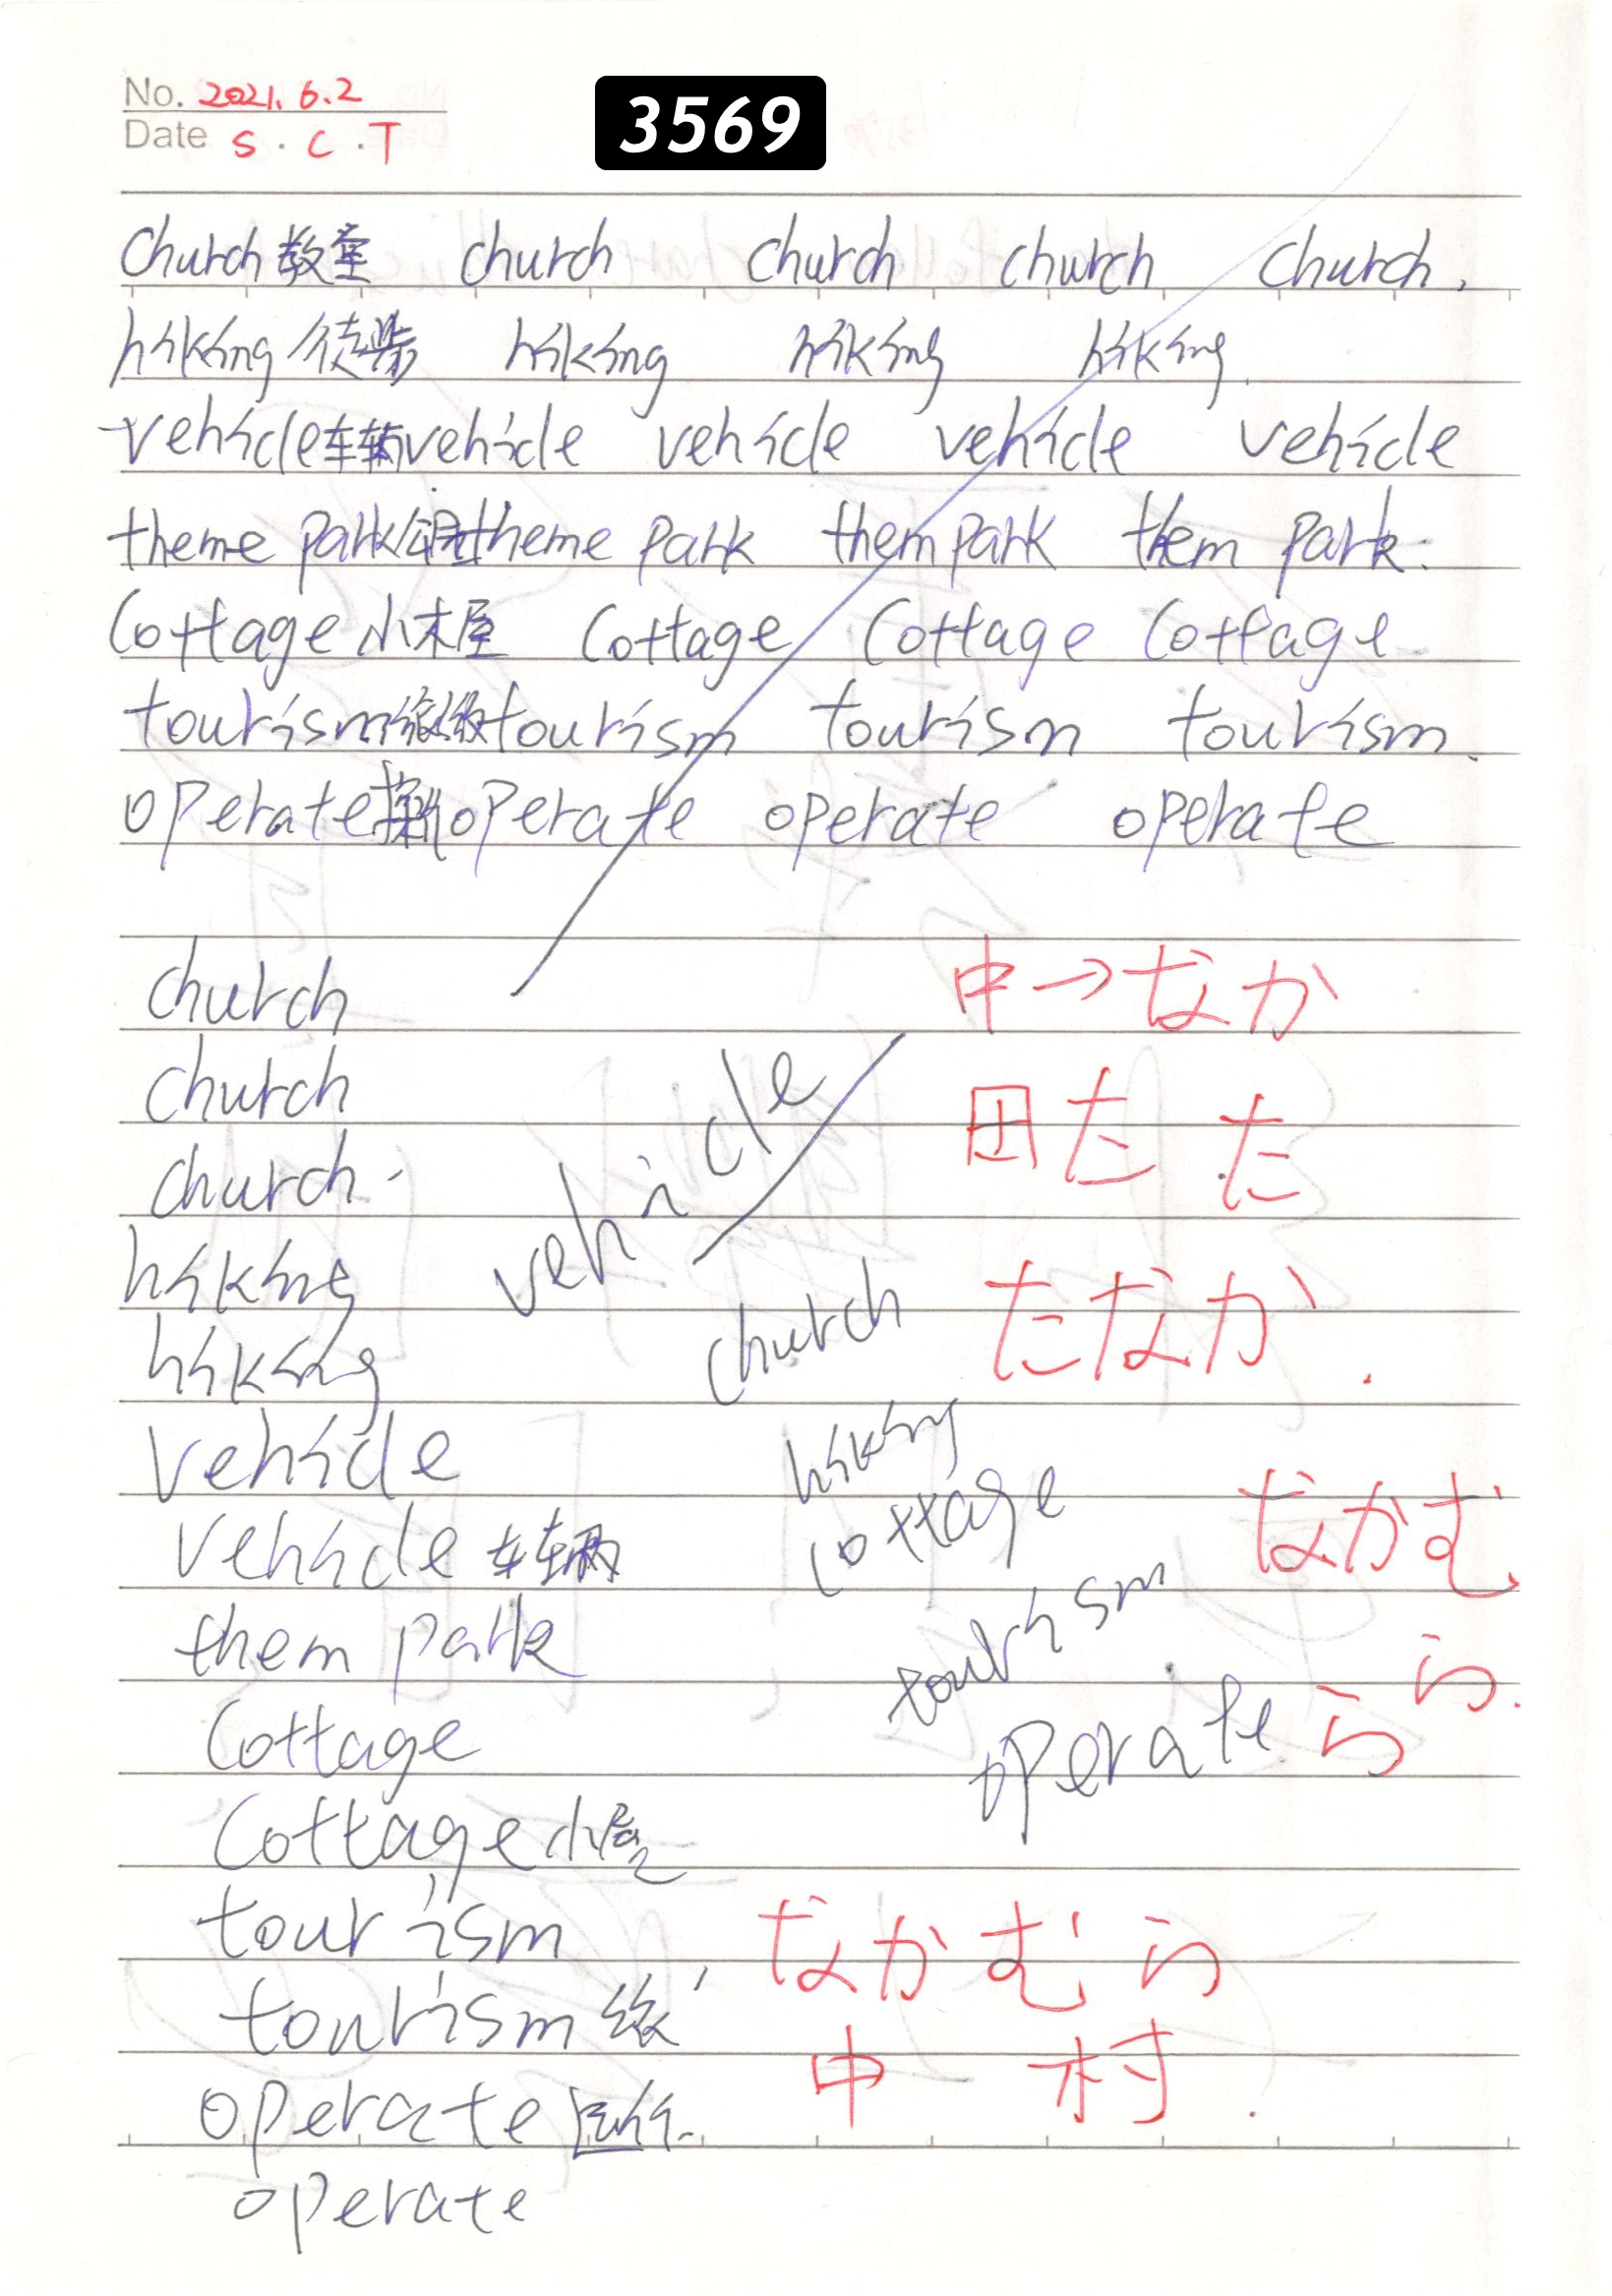 No. 2021. 6. 2
3569
Date S . C . T
Church 教室 church church church church.
hiking 徒步 hiking hiking hiking.
vehicle 车辆 vehicle vehicle vehicle vehicle
theme park theme park them park them park.
Cottage 小木屋 Cottage Cottage Cottage
tourism tourism tourism tourism.
operate operate operate operate
church
church
church.
hiking
hiking
vehicle
vehicle 车辆
them park
Cottage
Cottage 小屋
tourism
tourism
operate 运行.
operate
vehicle
church
hiking
cottage
tourism
operate
中→なか
田 た た
たなか.
なかむ
ら.
ら
なかむら
中 村.